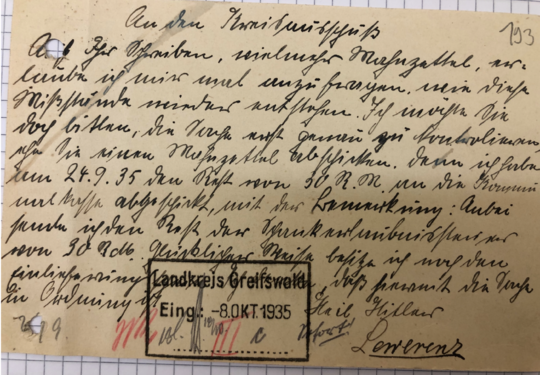 An den Kreisausschuß
193
Auf Ihr Schreiben, vielmehr Mahnzettel, er-
laube ich mir mal anzufragen, wie diese
Mißstände wieder entstehen. Ich möchte Sie
doch bitten, die Sache erst genau zu kontrolieren
ehe Sie einen Mahnzettel abschicken. Denn ich habe
am 24.9.35 den Rest von 30 R.M. an die Kommu
nalkasse abgeschickt, mit der Bemerkung: Anbei
sende ich den Rest der Schankerlaubnissteuer
von 30 Rch. Glücklicher Weise besitze ich noch den
Einlieferungs daß hiermit die Sache
in Ordnung ist
Heil Hitler
Lewerenz
Landkreis Greifswald
Eing.: -8.OKT.1935